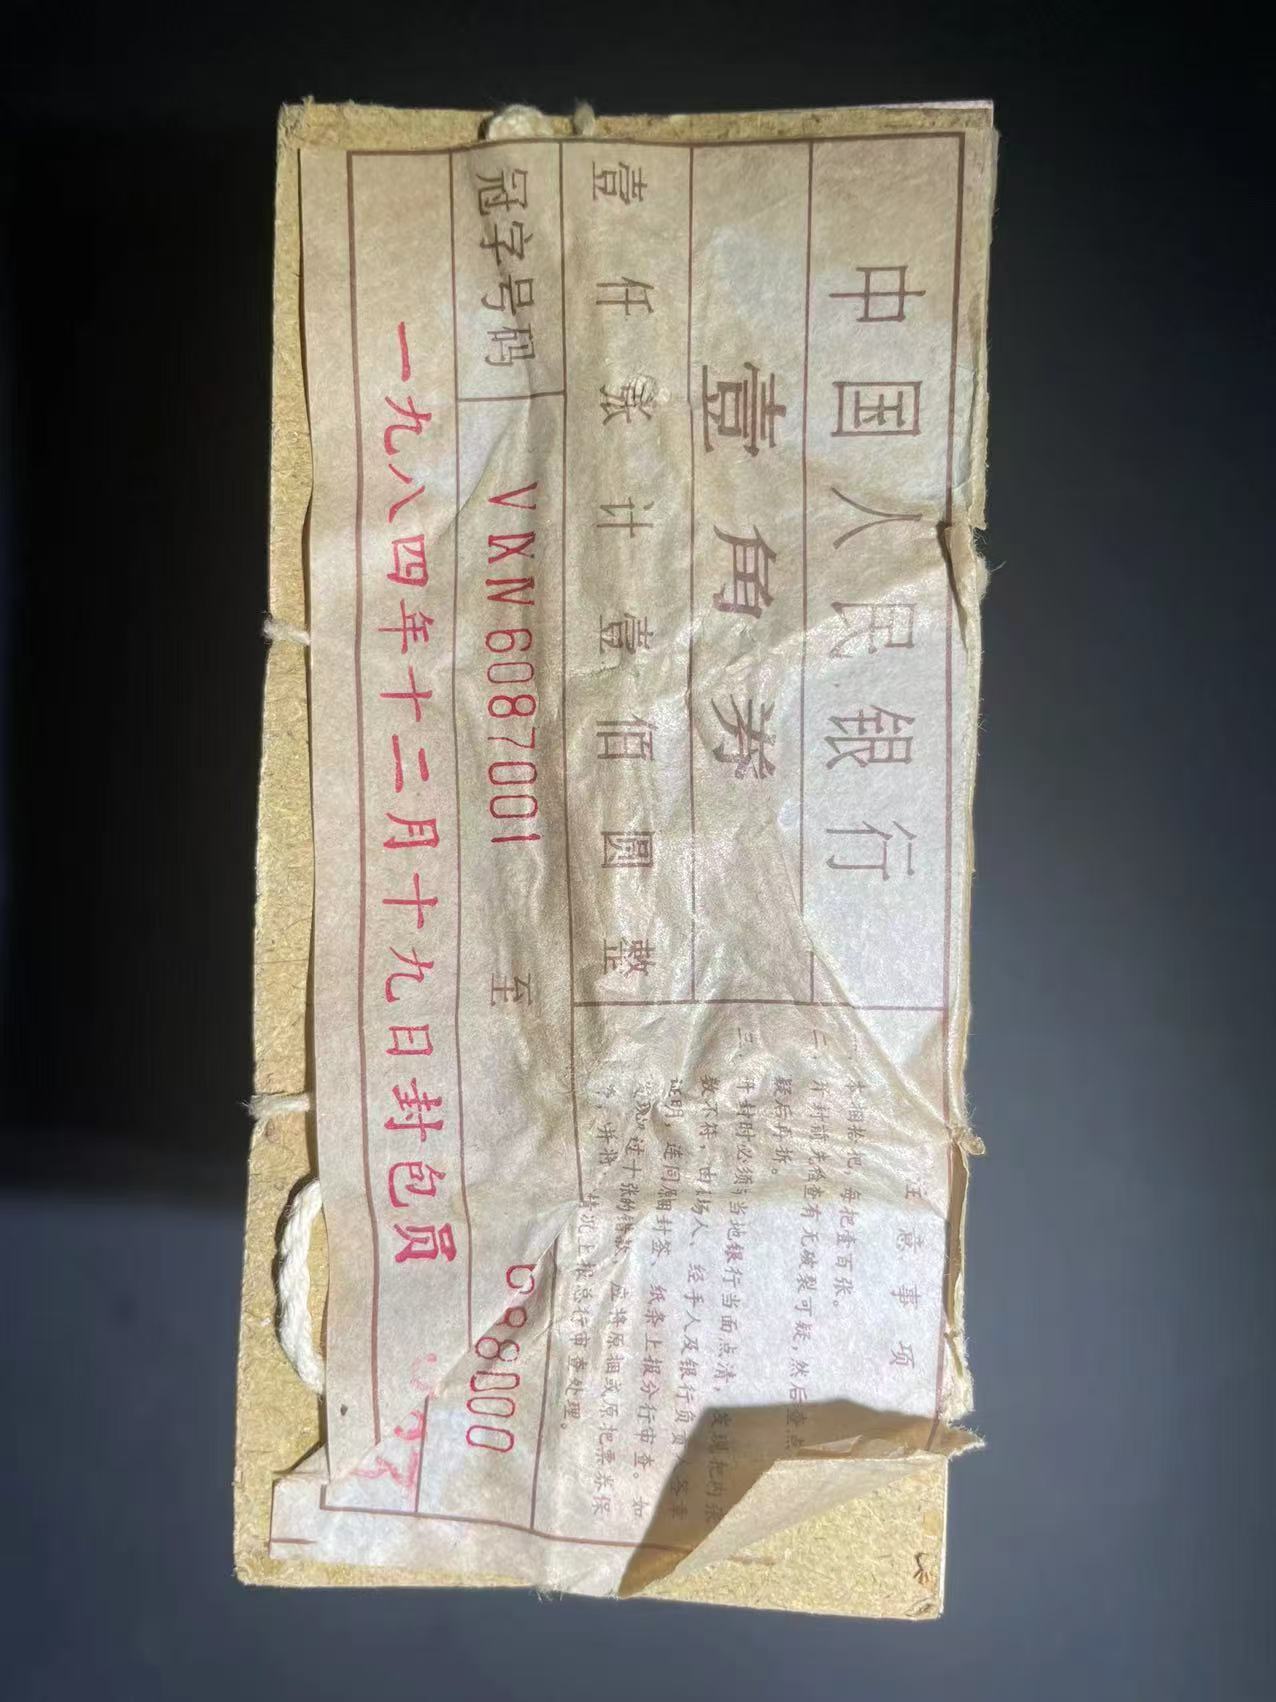 中国人民银行
壹角券
壹仟张计壹佰圆整
冠字号码 VⅨⅣ6087001 至 88000
一九八四年十二月十九日封包员
注意事项
一、本捆拾把，每把壹百张。
二、开封前先检查有无破裂可疑，然后查点
疑后再拆。
三、开封时必须与当地银行当面点清，发现把内张
数不符，由在场人、经手人及银行负责人签章
证明，连同原捆封签、纸条上报分行审查。如
发现超过十张的错款，应将原捆或原把票券保
并将情况上报总行审查处理。